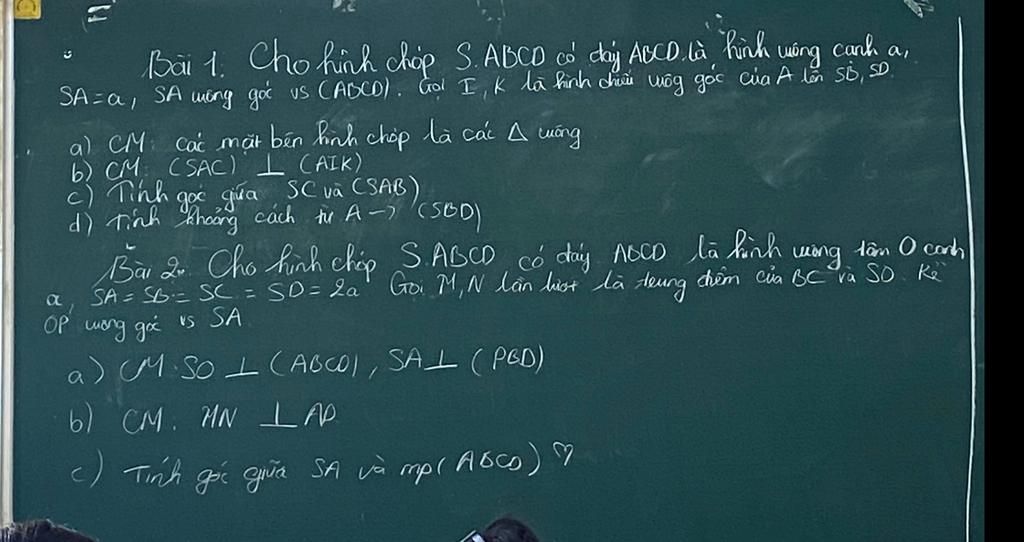 Bài 1. Cho hình chóp S.ABCD có đáy ABCD là hình vuông cạnh a,
SA = a, SA vuông góc vs (ABCD). Gọi I, K là hình chiếu vuôg góc của A lên SB, SD
a) CM: các mặt bên hình chóp là các Δ vuông
b) CM: (SAC) ⊥ (AIK)
c) Tính góc giữa SC và (SAB)
d) Tính khoảng cách từ A → (SBD)
Bài 2. Cho hình chóp S.ABCD có đáy ABCD là hình vuông tâm O cạnh
a, SA = SB = SC = SD = 2a Gọi M, N lần lượt là trung điểm của BC và SD. Kẻ
OP vuông góc vs SA
a) CM: SO ⊥ (ABCD), SA ⊥ (PBD)
b) CM: MN ⊥ AD
c) Tính góc giữa SA và mp(ABCD) ♡